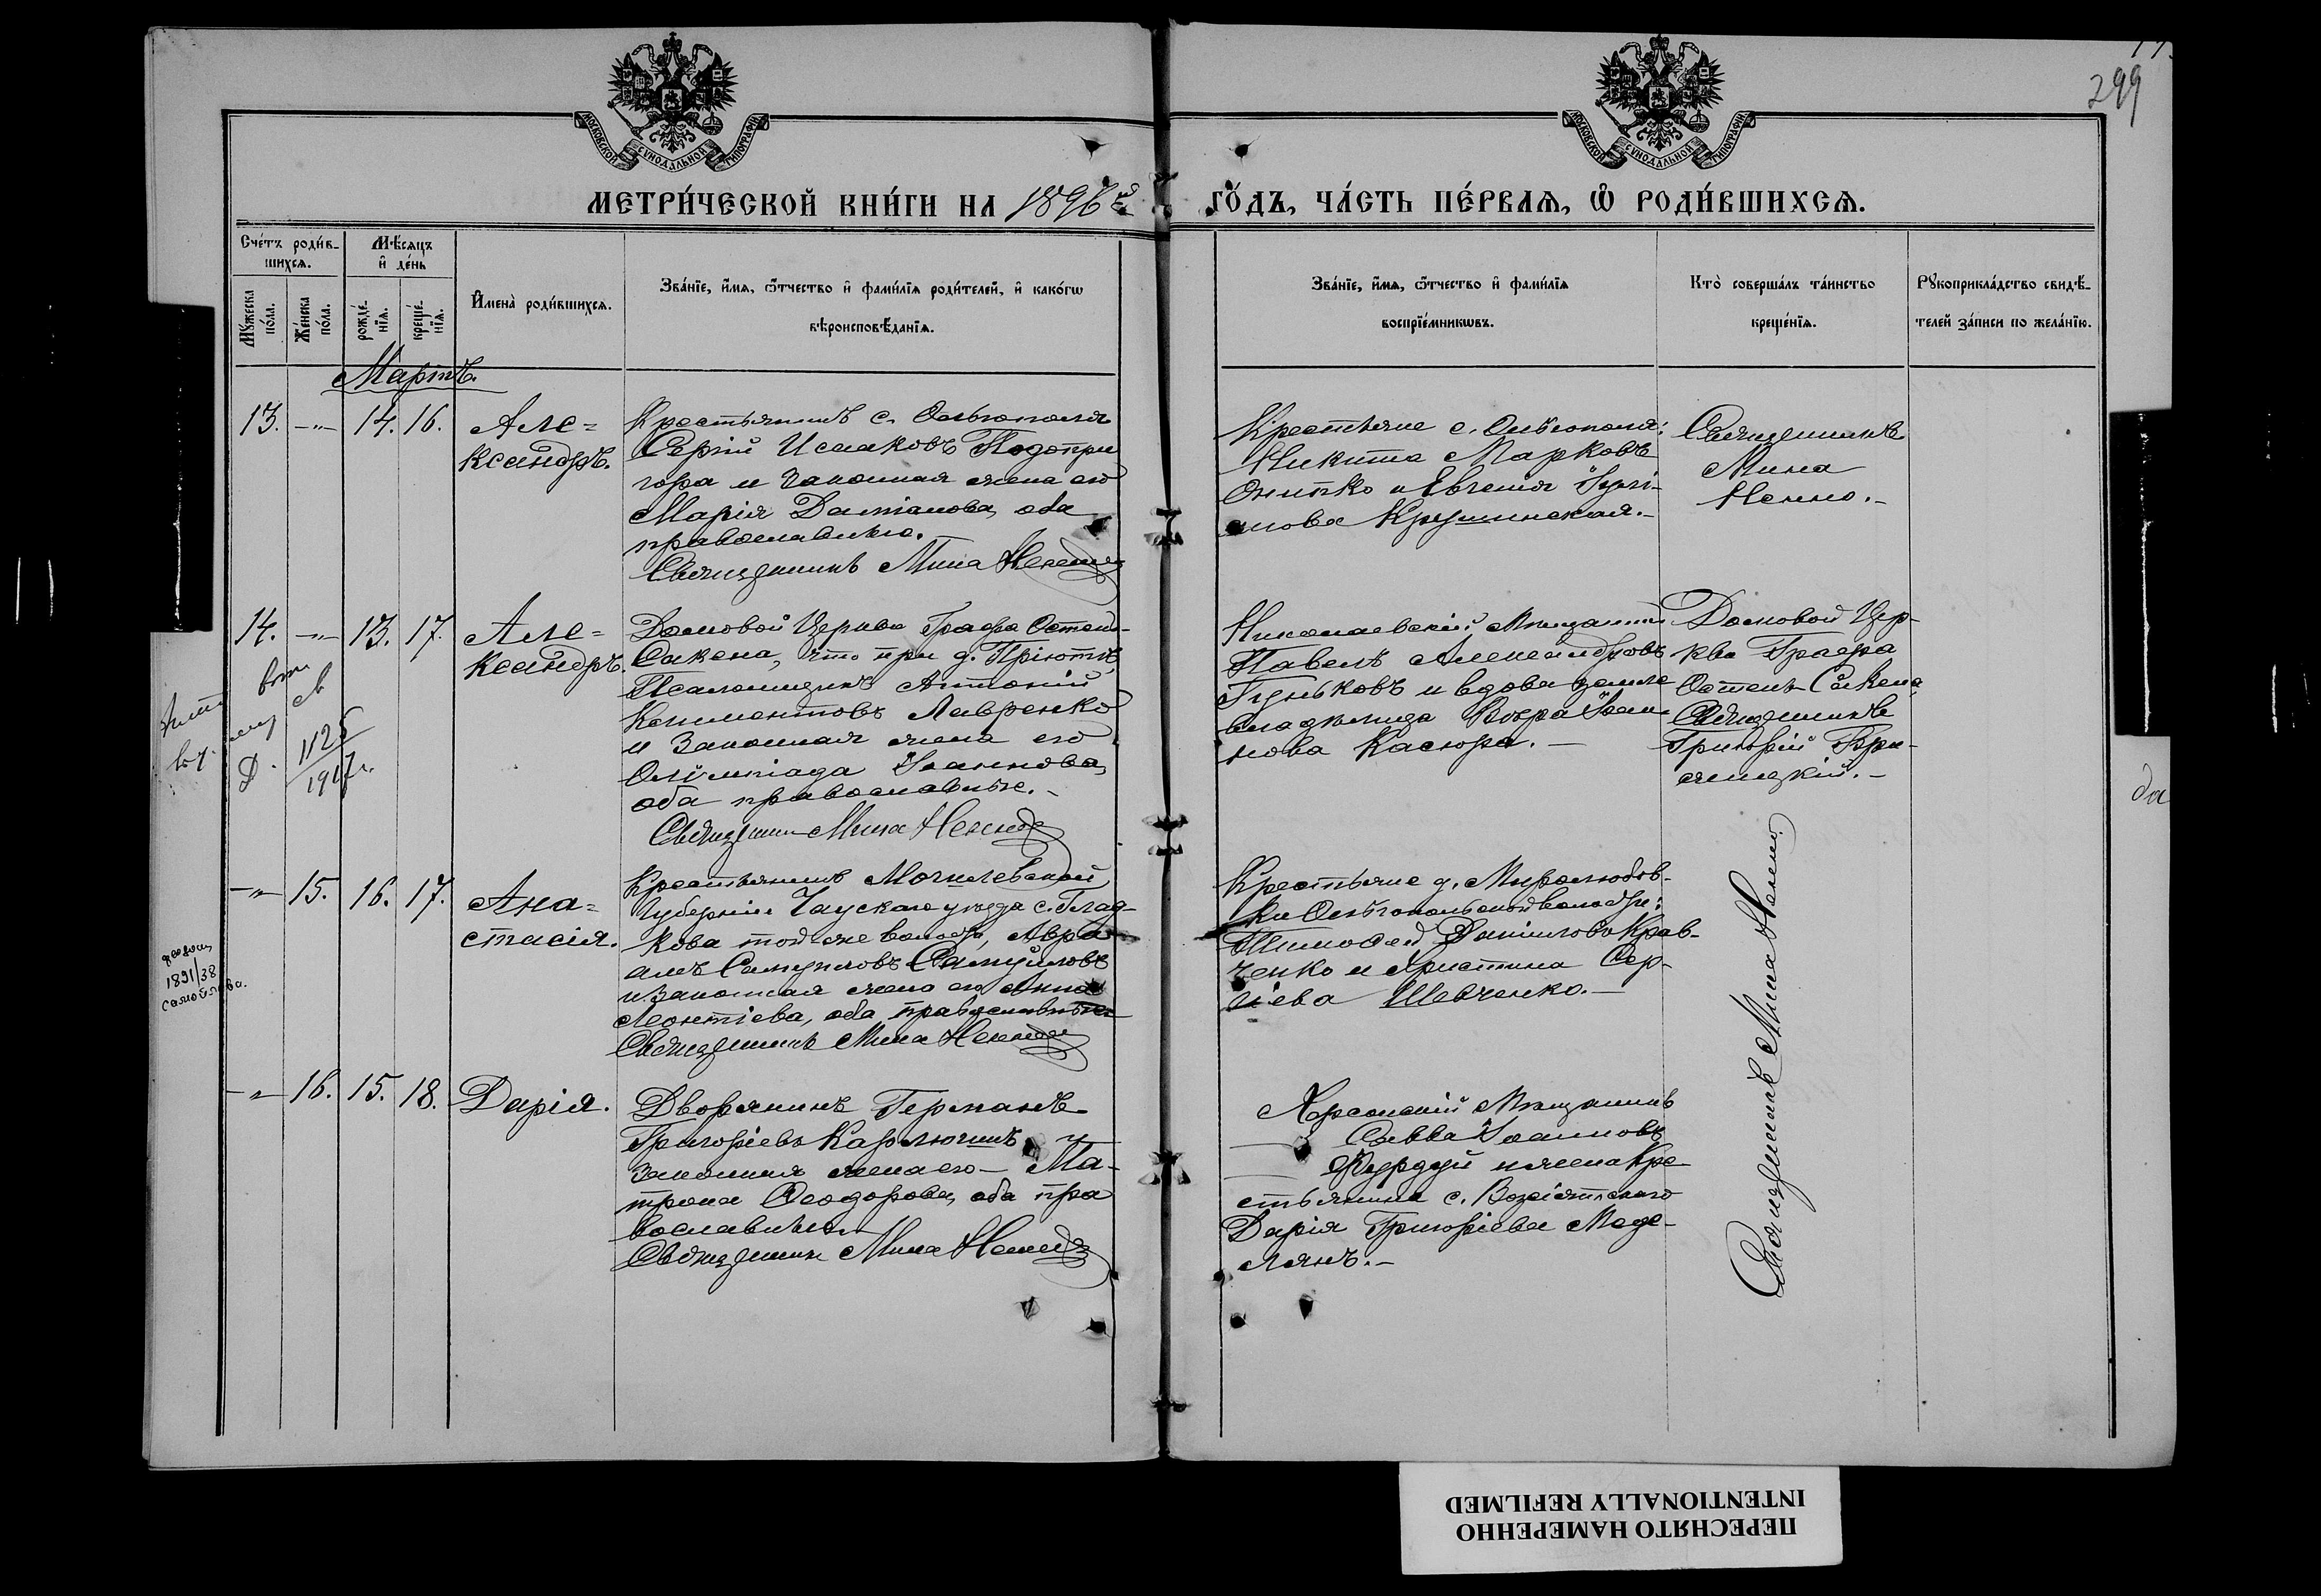 299
МОСКОВСКОЙ СѴНОДАЛЬНОЙ ТИПОГРАФІИ
МОСКОВСКОЙ СѴНОДАЛЬНОЙ ТИПОГРАФІИ
МЕТРИ́ЧЕСКОЙ КНИ́ГИ НА 1896й
ГО́ДЪ, ЧА́СТЬ ПЕ́РВАѦ, Ѿ РОДИ́ВШИХСѦ.
Сче́тъ роди́в-
шихсѧ.
Мѣ́сѧцъ
и҆ де́нь
Мꙋ́жеска
по́ла.
Же́нска
по́ла.
рожде́-
нїѧ.
креще́-
нїѧ.
И҆мена̀ роди́вшихсѧ.
Зва́нїе, и҆́мѧ, ѻ҆́тчество и҆ фами́лїѧ роди́телей, и҆ како́гѡ
вѣроисповѣ́данїѧ.
Зва́нїе, и҆́мѧ, ѻ҆́тчество и҆ фами́лїѧ
воспрїе́мникѡвъ.
Кто̀ соверша́лъ та́инство
креще́нїѧ.
Рꙋкоприкла́дство свидѣ́-
телей за́писи по жела́нїю.
Мартъ.
13. -"- 14. 16. Але=
ксандръ.
Крестьянинъ с. Ольгополя
Сергій Исааковъ Подопри
гора и законная жена его
Марія Даміанова, оба
православные.
Священникъ Мина Ненно
Крестьяне с. Ольгополя:
Никита Марковъ
и Евгенія
Крушинская.-
Священникъ
Мина
Ненно.-
14. -"- 13. 17. Але=
ксандръ.
Домовой Церкви Графа Остенъ-
Сакена, что при д. Пріютѣ,
Псаломщикъ Антоній
Климентовъ Лавренко
и законная жена его
Олимпіада Іоаннова,
оба православные.-
Священникъ Мина Ненно
Николаевскій Мѣщанинъ
Павелъ Александровъ
Гуньковъ и вдова земле
владѣлица Вѣра Іоан-
нова Касюра.-
Домовой Цер-
кви Графа
Остенъ-Сакена
Священникъ
Григорій
1125
1917 г.
-"- 15. 16. 17. Ана=
стасія.
Крестьянинъ Могилевской
Губерніи Чаускаго уѣзда с. Глад-
кова той же волости, Авра
амъ Самуиловъ Самуиловъ
и законная жена его Анна
Леонтіева, оба православные
Священникъ Мина Ненно
1891/38
Самойлова.
Крестьяне д. Миролюбов-
ки Ольгопольской волости:
Тимофей Даніиловъ Крав-
ченко и Христина Сер-
гіева Шевченко.-
-"- 16. 15. 18. Дарія.
Дворянинъ Германъ
Григоріевъ и
законная жена его Ма-
трона Ѳеодорова, оба пра
вославные
Священникъ Мина Ненно
Херсонскій Мѣщанинъ
Савва Іоанновъ
и жена Кре-
стьянина с. Возсіятскаго
Дарія Григоріева Моде-
лянъ.-
Священникъ Мина Ненно.
да
ПЕРЕСНЯТО НАМЕРЕННО
INTENTIONALLY REFILMED